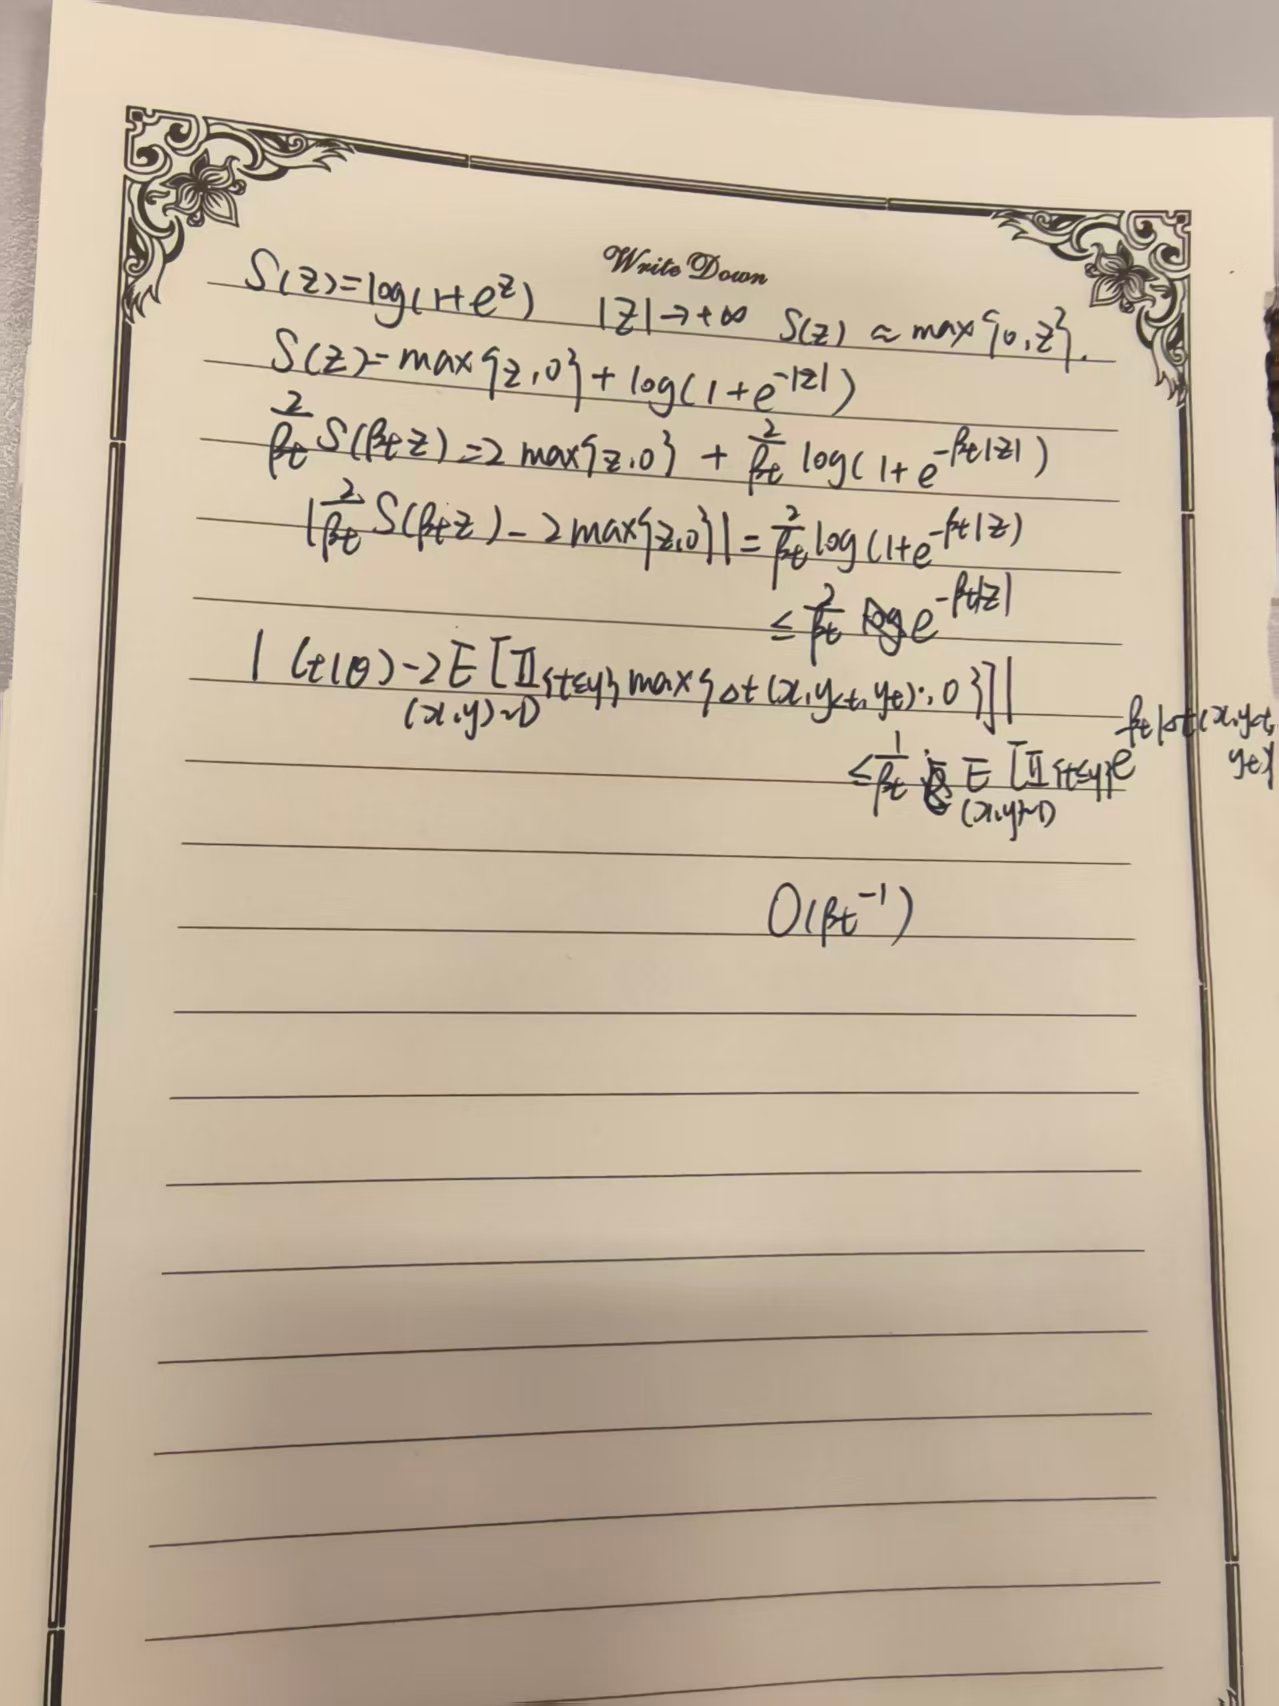 Write Down
S(z)=log(1+e^z)  |z|→+∞  S(z) ≈ max{0,z}.
S(z)=max{z,0}+log(1+e^{-|z|})
2/βt S(βt z)=2 max{z,0} + 2/βt log(1+e^{-βt|z|})
|2/βt S(βt z)-2max{z,0}|=2/βt log(1+e^{-βt|z|})
≤ 2/βt e^{-βt|z|}
| ℓt(θ)-2E_{(x,y)~D}[𝕀{t≤y} max{Δt(x,y<t,yt),0}]|
≤ 1/βt E_{(x,y)~D}[𝕀{t≤y}e^{-βt|Δt(x,y<t,yt)|}
O(βt^{-1})